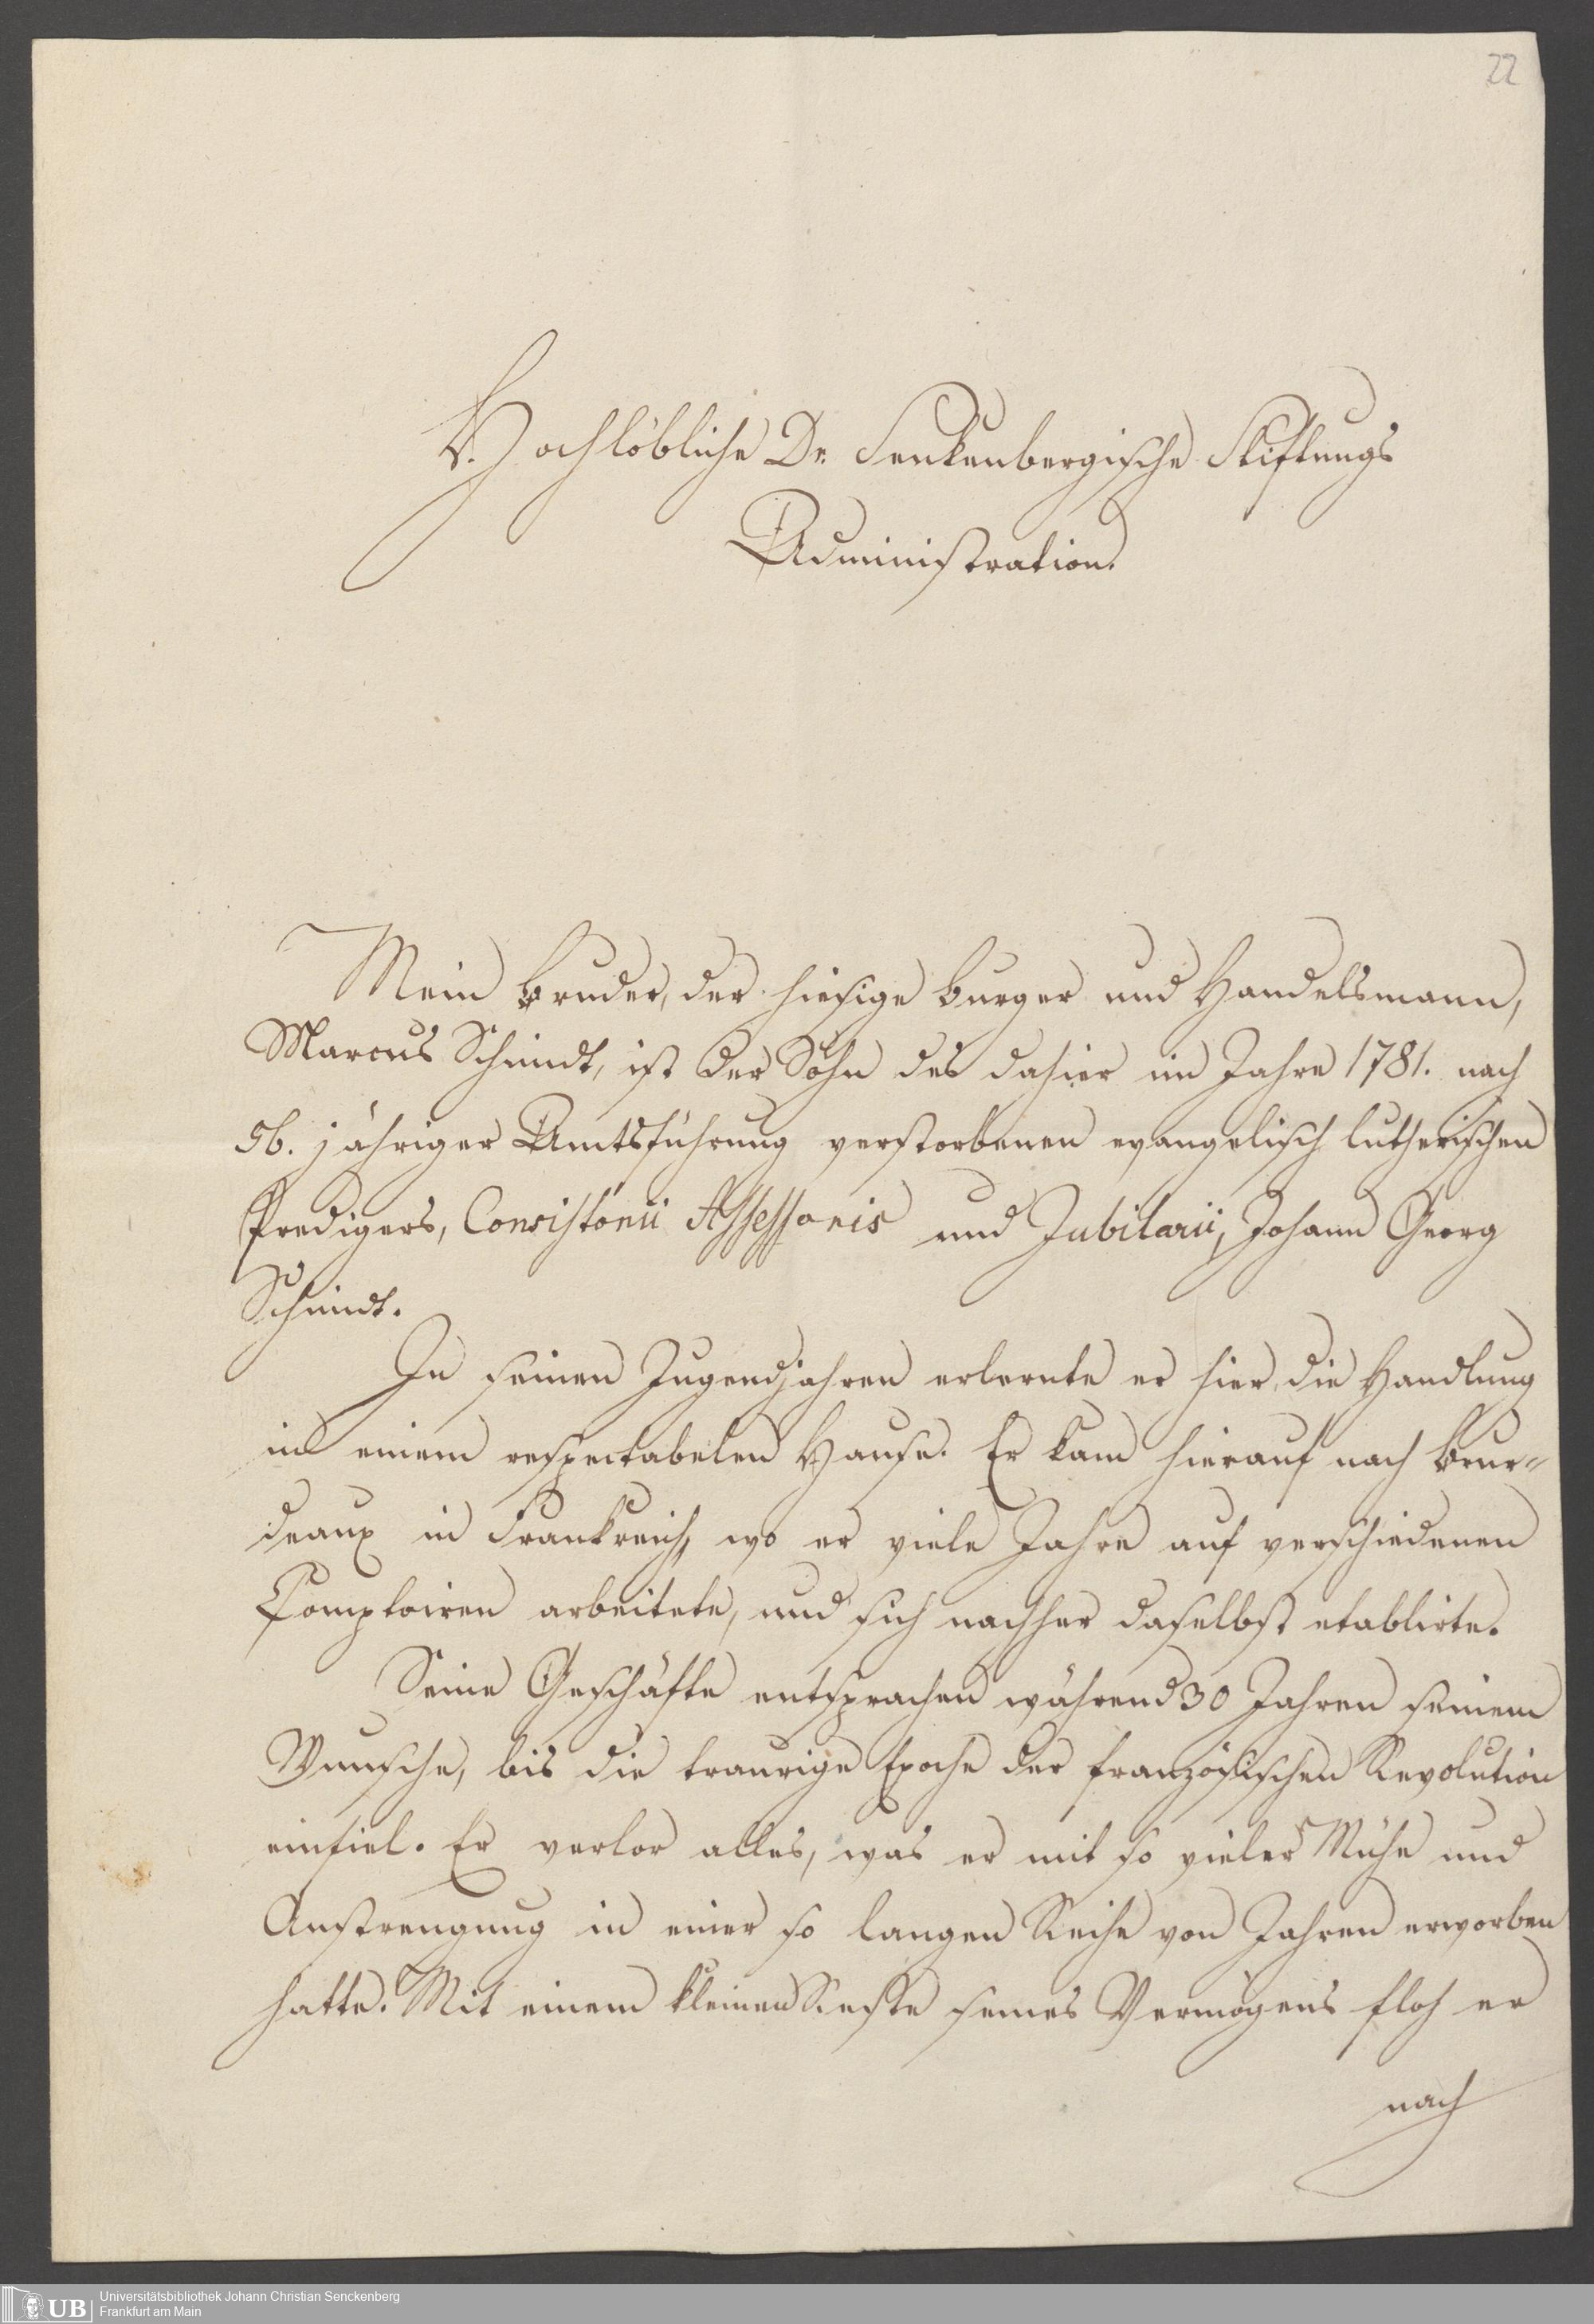 22
Hochlöbliche Dr. Senkenbergische Stiftungs
Administration.
Mein Bruder, der hiesige Burger und Handelsmann,
Marcus Schmidt, ist der Sohn des dahier im Jahre 1781. nach
56. jähriger Amtsführung verstorbenen evangelisch lutherischen
Predigers, Consistorii Assessoris und Jubilarii, Johann Georg
Schmidt.
In seinen Jugendjahren erlernte er hier die Handlung
in einem respectabelen Hause. Er kam hierauf nach Bour-
deaux in Frankreich, wo er viele Jahre auf verschiedenen
Comptoiren arbeitete, und sich nachher daselbst etablirte.
Seine Geschäfte entsprachen während 30 Jahren seinem
Wunsche, bis die traurige Epoche der französischen Revolution
einfiel. Er verlor alles, was er mit so vieler Mühe und
Anstrengung in einer so langen Reihe von Jahren erworben
hatte. Mit einem kleinen Reste seines Vermögens floh er
nach
UB
Universitätsbibliothek Johann Christian Senckenberg
Frankfurt am Main